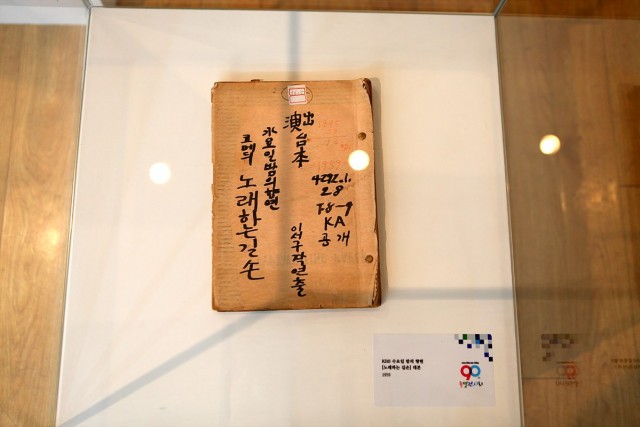 演出台本
4292.1.
28
F8-9
KA
공개
이서구 작 연출
수요일밤의향연
코메듸 노래하는길손
KBS 수요일 밤의 향연
[노래하는 길손] 대본
1959
90